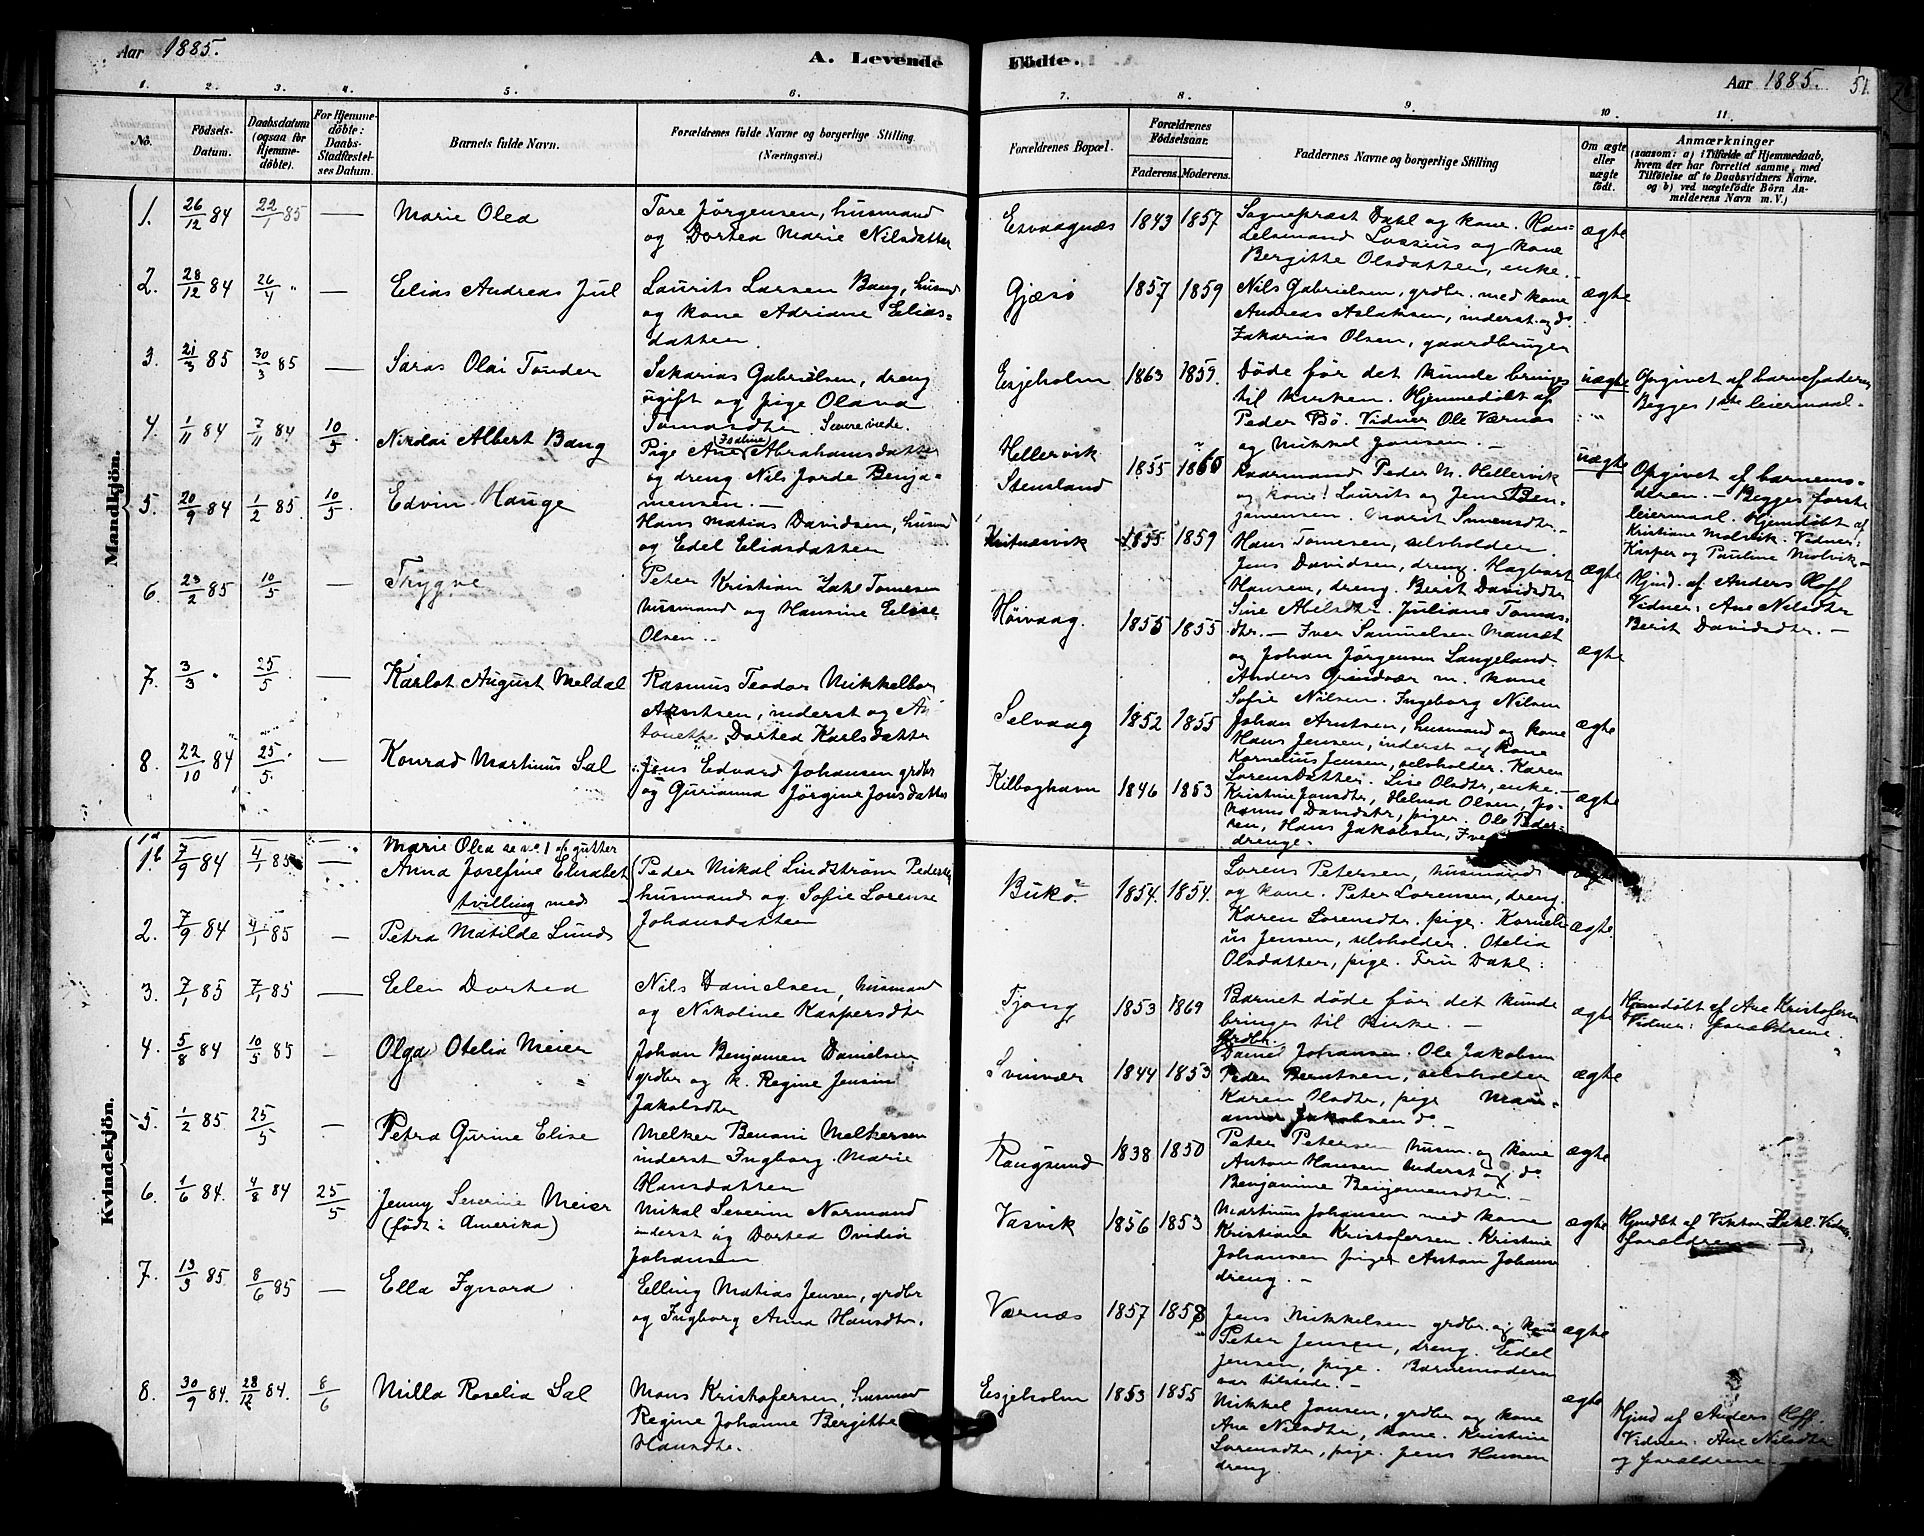 Aar 1885.
A. Levende
Födte.
Aar 1885.
51.
1.
2.
3.
4.
5.
6.
7.
8.
9.
10.
11.
No.
Födsels-
Datum.
Daabsdatum
(ogsaa for
Hjemme-
döbte).
For Hjemme-
döbte:
Daabs-
Stadfæstel-
ses Datum.
Barnets fulde Navn.
Forældrenes fulde Navne og borgerlige Stilling.
(Næringsvei.)
Forældrenes Bopæl.
Forældrenes
Födselsaar.
Faderens.
Moderens.
Faddernes Navne og borgerlige Stilling
Om ægte
eller
uægte
födt.
Anmærkninger
(saasom: a) i Tilfælde af Hjemmedaab,
hvem der har forrettet samme, med
Tilföielse af to Daabsvidners Navne.
og b) ved uægtefödte Börn An-
melderens Navn m. V.)
Mandkjön.
1. 26/12 84 22/1 85 — Marie Olea
Tore Jörgensen, husmand
og Dortea Marie Nilsdatter
1843 1857
Sognepræst Dahl og kone. Han-
delsmand Lossius og kone
Bergitte Olsdatter, enke. -
ægte
2. 28/12 84 26/4 " — Elias Andreas Jul
Laurits Larsen Bang, husmd
og kone Adriane Elias-
datter.
Gjæsö 1857 1859
Nils Gabrielsen, grdbr. med kone
Andreas Aslaksen, inderst og do.
Zakarias Olsen, gaardbruger
ægte
3. 21/3 85 30/3 85 — Saras Olai Tönder
Sakarias Gabrielsen, dreng
ugift og pige Olava
Tomasdtr.
Esjeholm 1863 1859.
Döde för det kunde bringes
til kirken. Hjemmedöbt af
Peder Bö. Vidner Ole Værnes
og Mikkel Jensen. -
uægte
Opgivet af barnefaderen
Begges 1ste leiermaal -
4. 1/11 84 7/11 84 10/5 Albert Bang
Pige Ane Abrahamsdatter
og dreng Nils Benja-
mensen. -
Hellervik
Stensland
1855 1860
Peder M. Hellervik
og kone! Laurits og Jens Ben-
jamensen. Marit
uægte
Opgivet af barnemo-
deren. - Begges förste
leiermaal. Hjemdöbt af
Kristiane Molvik. Vidner:
Kasper og Pauline Molvik -
5. 20/9 84 1/2 85. 10/5 Edvin Hauge
Hans Matias Davidsen, husmd
og Edel Eliasdatter
1855 1859
Hans Tomesen, selvholder.
Jens Davidsen, dreng. Hagbart
Hansen, dreng. Berit Davidsdtr
ægte
Hjmd. af Anders Hoff
Vidner: Ane Nilsdtr
Berit Davidsdtr. -
6. 23/2 85 10/5 — Trygve
Peter Kristian Tomesen
husmand og Hansine Elise
Olsen. -
Höivaag. 1855 1855
Sine Abelsdtr. Juliane Tomas-
dtr. - Iver Samuelsen
og Johan Jörgensen Langeland
Anders Grindvær m. kone
ægte
7. 3/3 " 25/5 — Karlot August Meldal
Rasmus Teodor
Arntsen, inderst og An-
tonette Dortea Karlsdatter
Selvaag 1852 1855
Sofie Nilsen. Ingeborg Nilsen
Johan Arntsen, husmand og kone
Hans Jensen, inderst og kone
ægte
8. 22/10 84 25/5 — Konrad Martinus Sal
Jens Edvard Johansen grdbr
og Gurianna Jörgine Jonsdatter
Kilboghavn 1846 1853
Kornelius Jensen, selvholder. Karen
Lorensdatter. Lise Olsdtr, enke. -
Kristine Jonsdtr, Helmer Olsen, Jo-
hanna Davidsdtr, piger. Ole Peder-
sen, Hans Jakobsen,
drenge.
ægte
Kvindekjön.
1a — — — Marie Olea se No 1 af gutter
1b 7/9 84 4/1 85 — Anna Josefine Elisabet
tvilling med
Peder Mikal Lindström Pedersen
husmand og Sofie Lorense
Johansdatter
Bukö 1854. 1854.
Lorens Petersen, husmand
og kone. Peter Lorensen, dreng.
Karen Lorensdtr. pige. Korneli-
us Jensen, selvholder. Otelia
Olsdatter, pige. Fru Dahl:
2. 7/9 84 4/1 85 — Petra Matilde Lund
ægte.
3. 7/1 85 7/1 85 — Elen Dortea
Nils Danielsen, husmand
og Nikoline Kaspersdtr
Tjong 1853 1869
Barnet döde för det kunde
bringes til kirke. -
ægte
Hjemdöbt af Ane Kristofersen
Vidner: forældrene.
4. 5/8 84 10/5 85 — Olga Otelia Meier
Johan Benjamen Danielsen
grdbr og k. Regine Jensine
Jakobsdtr
Svinvær 1844 1853
Grdbr.
Daniel Johansen. Ole Jakobsen
Peder Berntsen, selvholder
Karen Olsdtr, pige Mari-
anne Jakobsen do. -
ægte
5. 1/2 85. 25/5 — Petra Gurine Elise
Melker Benoni Melkersen
inderst Ingborg Marie
Hansdatter
Rangsund 1838 1850
Peter Petersen husm. og kone
Anton Hansen inderst og do
Benjamine Benjamensdtr. -
ægte
6. 1/6 84. 4/8 84 25/5 Jenny Severine Meier
(födt i Amerika)
Mikal Severin Normand
inderst og Dortea Ovidia
Johansen
Vasvik 1856 1853
Martinus Johansen med kone
Kristiane Kristofersen. Kristine
Johansen piger Anton Johans
dreng. -
ægte
Hjmdöbt af Viktor Dahl. Vidner
forældrene -
7. 13/3 85. 8/6 85 — Ella Ignora
Elling Matias Jensen, grdbr
og Ingborg Anna Hansdtr.
Værnæs 1857 1858
Jens Mikkelsen grdbr. og kone
Peter Jensen, dreng. Edel
Jensen, pige. Barnemoderen
var tilstede. -
ægte
8. 30/9 84. 28/12 84. 8/6 Milla Roselia Sal
Mons Kristofersen, husmd
Regine Johanne Bergitte
Hansdtr.
Esjeholm 1853 1855
Mikkel Jensen, grdbr og kone
Ane Nilsdtr, kone. Kristine
Lorensdtr, pige. Jens Hansen
dreng.
ægte
Hjmd af Anders Hoff.
Vidner: Ane Nilsdtr
og forældrene